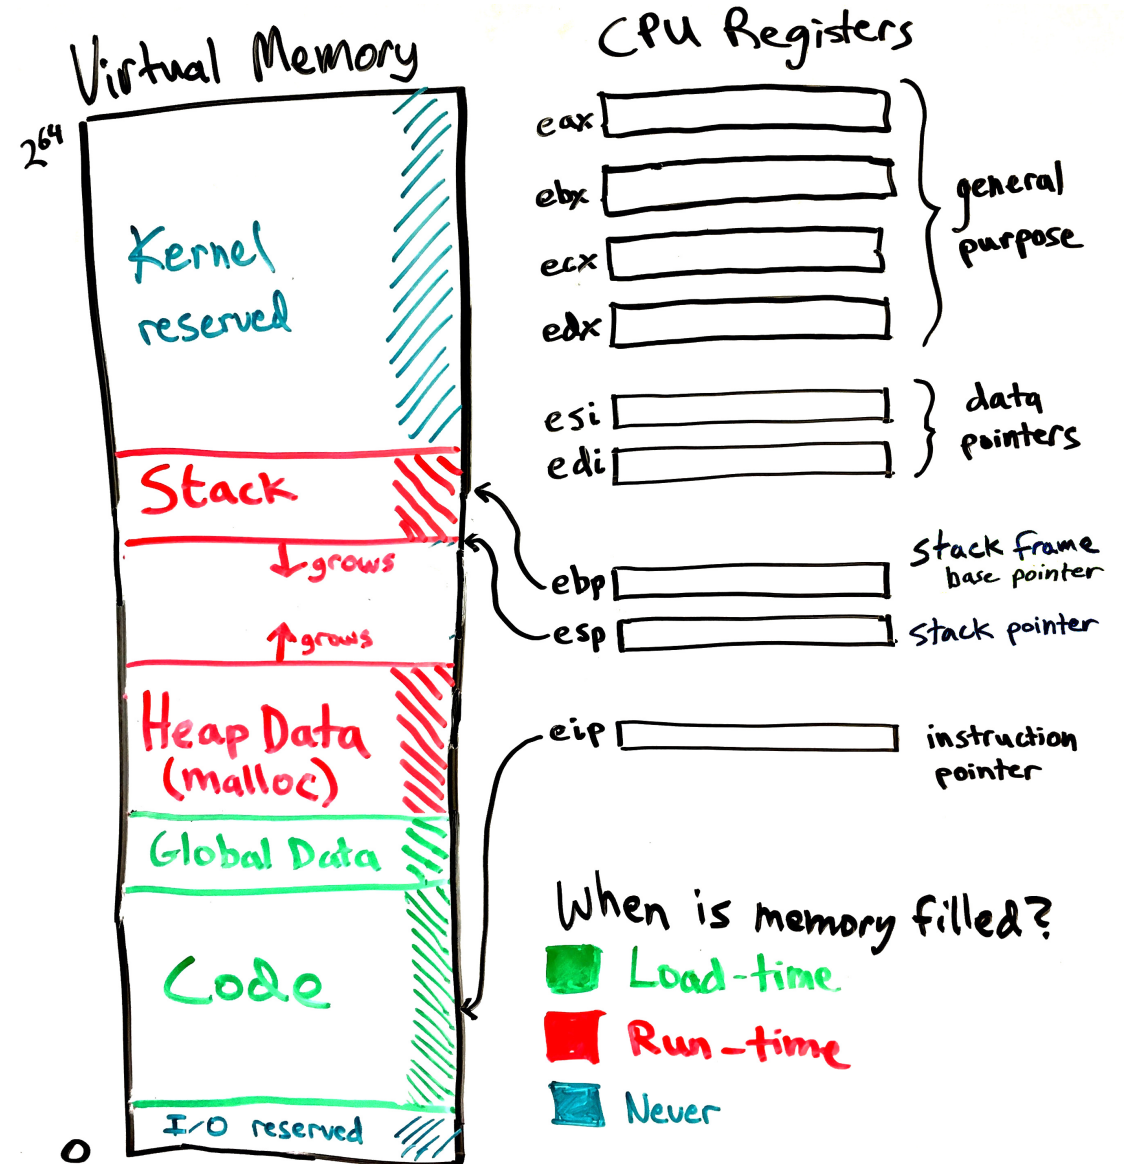 Virtual Memory
2^64
Kernel
reserved
Stack
grows
grows
Heap Data
(malloc)
Global Data
Code
I/O reserved
0
CPU Registers
eax
ebx
ecx
edx
general
purpose
esi
edi
data
pointers
ebp
stack frame
base pointer
esp
stack pointer
eip
instruction
pointer
When is memory filled?
Load-time
Run-time
Never